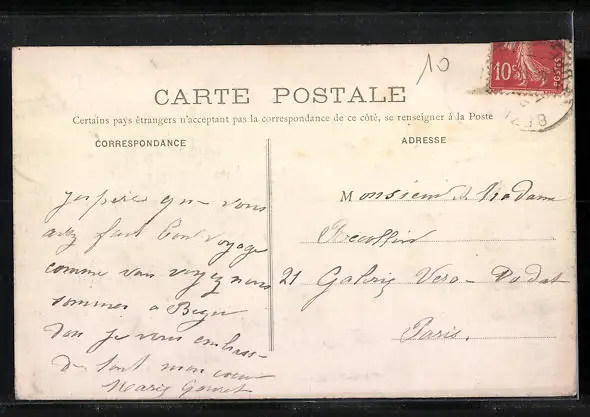 10
10c
POSTES
CARTE POSTALE
Certains pays étrangers n'acceptant pas la correspondance de ce côté, se renseigner à la Poste
CORRESPONDANCE
ADRESSE
j'espère que vous
avez fait bon voyage
comme vous voyez nous
sommes a
don je vous embrass
de tout mon coeur
Marie
Monsieur & Madame
21 Galerie Vero-Dodat
Paris.